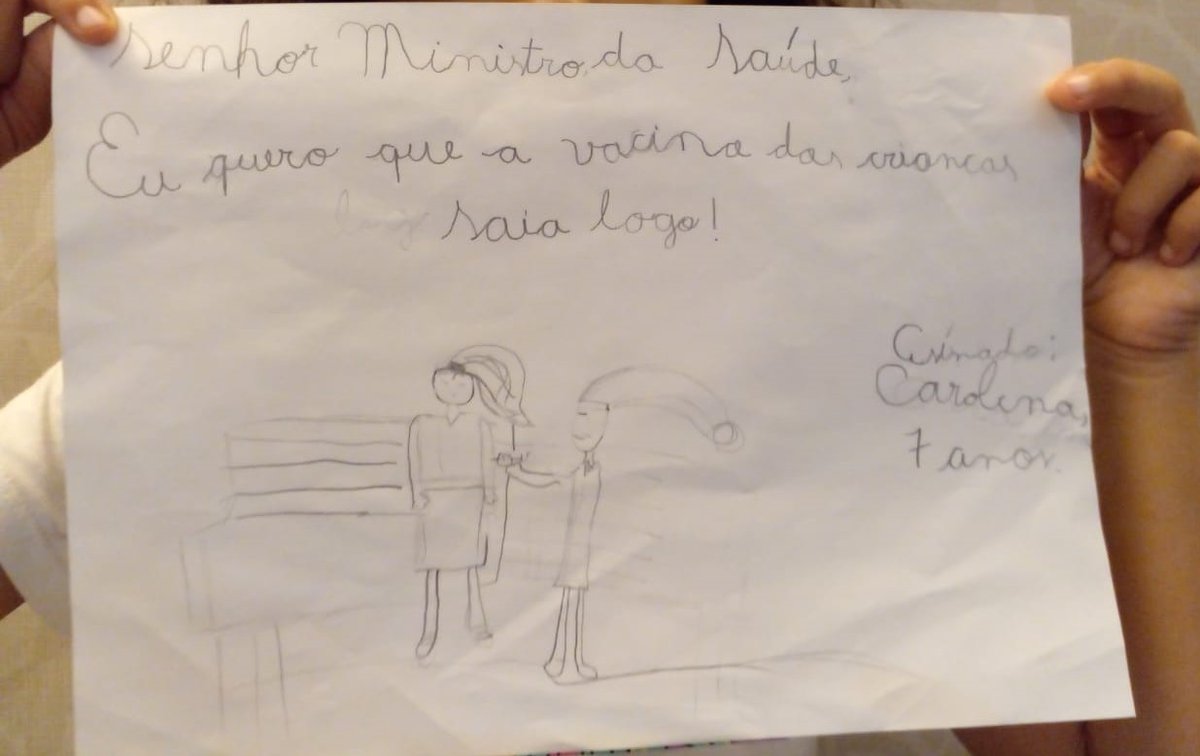 Senhor Ministro da Saúde,
Eu quero que a vacina das crianças
saia logo!
Assinado:
Carolina,
7 anos.